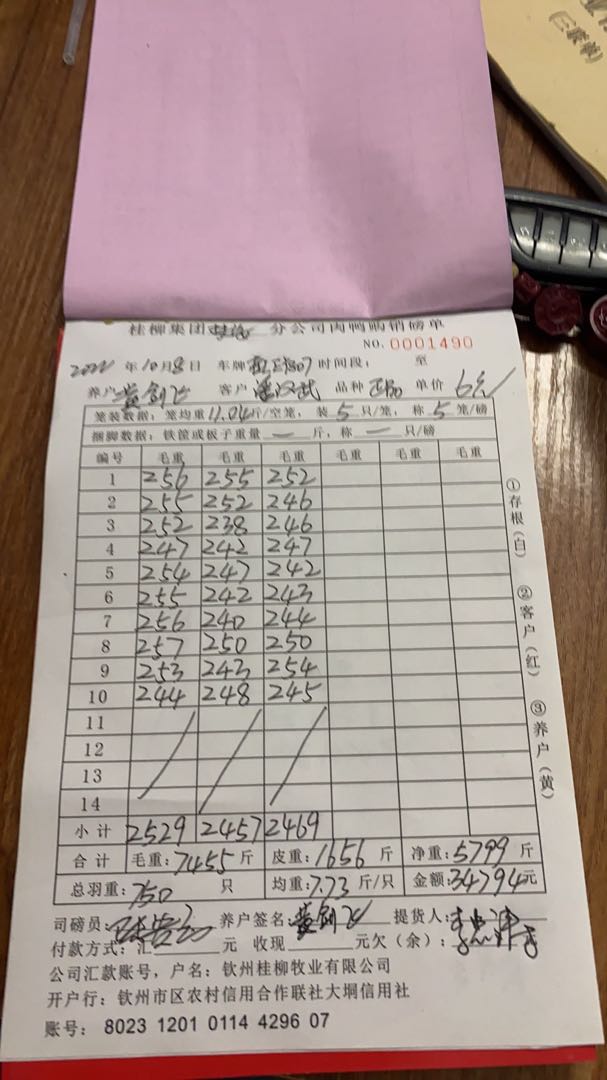 (三联单)
桂柳集团 分公司肉鸭购销磅单
NO. 0001490
2022年10月8日 车牌 时间段: 至
养户 黄剑飞 客户 潘汉武 品种 单价 6元
笼装数据: 笼均重 11.04 斤/空笼, 装 5 只/笼, 称 5 笼/磅
捆脚数据: 铁筐或板子重量 — 斤, 称 — 只/磅
编号 毛重 毛重 毛重 毛重 毛重 毛重
1 256 255 252
2 255 252 246
3 252 238 246
4 247 242 247
5 254 247 242
6 255 242 243
7 256 240 244
8 257 250 250
9 253 243 254
10 244 248 245
11
12
13
14
小计 2529 2457 2469
合计 毛重: 7455 斤 皮重: 1656 斤 净重: 5799 斤
总羽重: 750 只 均重: 7.73 斤/只 金额: 34794元
司磅员: 养户签名: 黄剑飞 提货人:
付款方式: 汇 元 收现 元欠(余):
公司汇款账号, 户名: 钦州桂柳牧业有限公司
开户行: 钦州市区农村信用合作联社大垌信用社
账号: 8023 1201 0114 4296 07
①存根(白)
②客户(红)
③养户(黄)